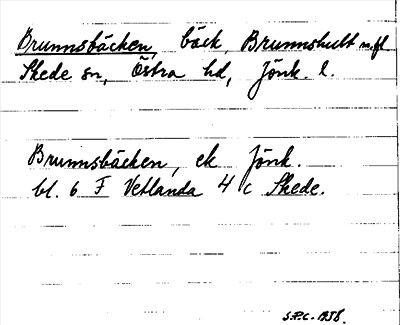 Brunnsbäcken, bäck, Brunnshult m.fl
Skede sn, Östra hd, Jönk. l.
Brunnsbäcken, ek Jönk.
bl. 6 F Vetlanda 4 c Skede.
S.P.C. 1958.